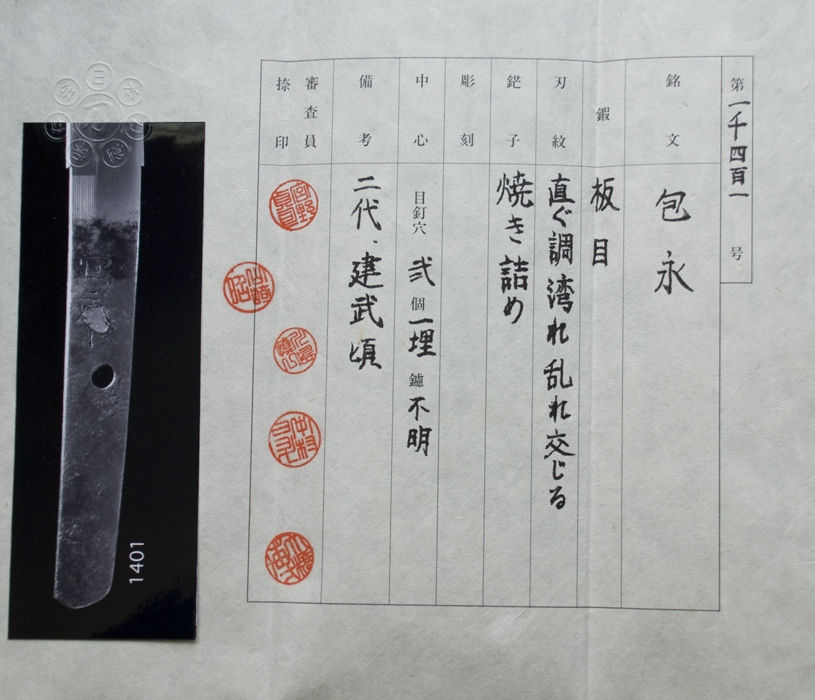 第一千四百一号
銘文 包永
鍜 板目
刃紋 直ぐ調湾れ乱れ交じる
鋩子 焼き詰め
彫刻
中心 目釘穴 弐個 一埋 鑢 不明
備考 二代、建武頃
審査員
捺印
1401